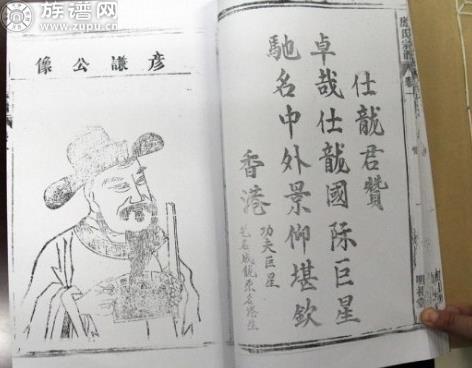 族谱网
www.zupu.cn
仕龍君贊
卓哉仕龍國际巨星
馳名中外景仰堪欽
香港
功夫巨星
艺名成龍原名港生
彥謙公像